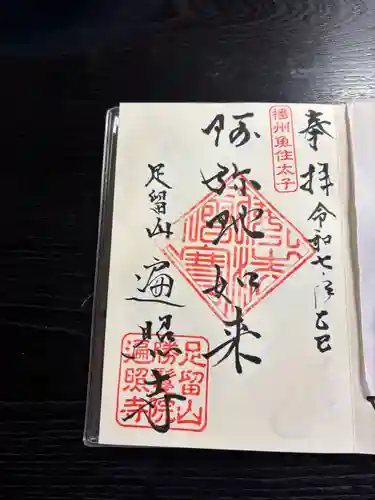 奉拝
令和七年乙巳
播州魚住太子
阿弥陀如来
足留山
遍照寺
足留山
勝鬘院
遍照寺